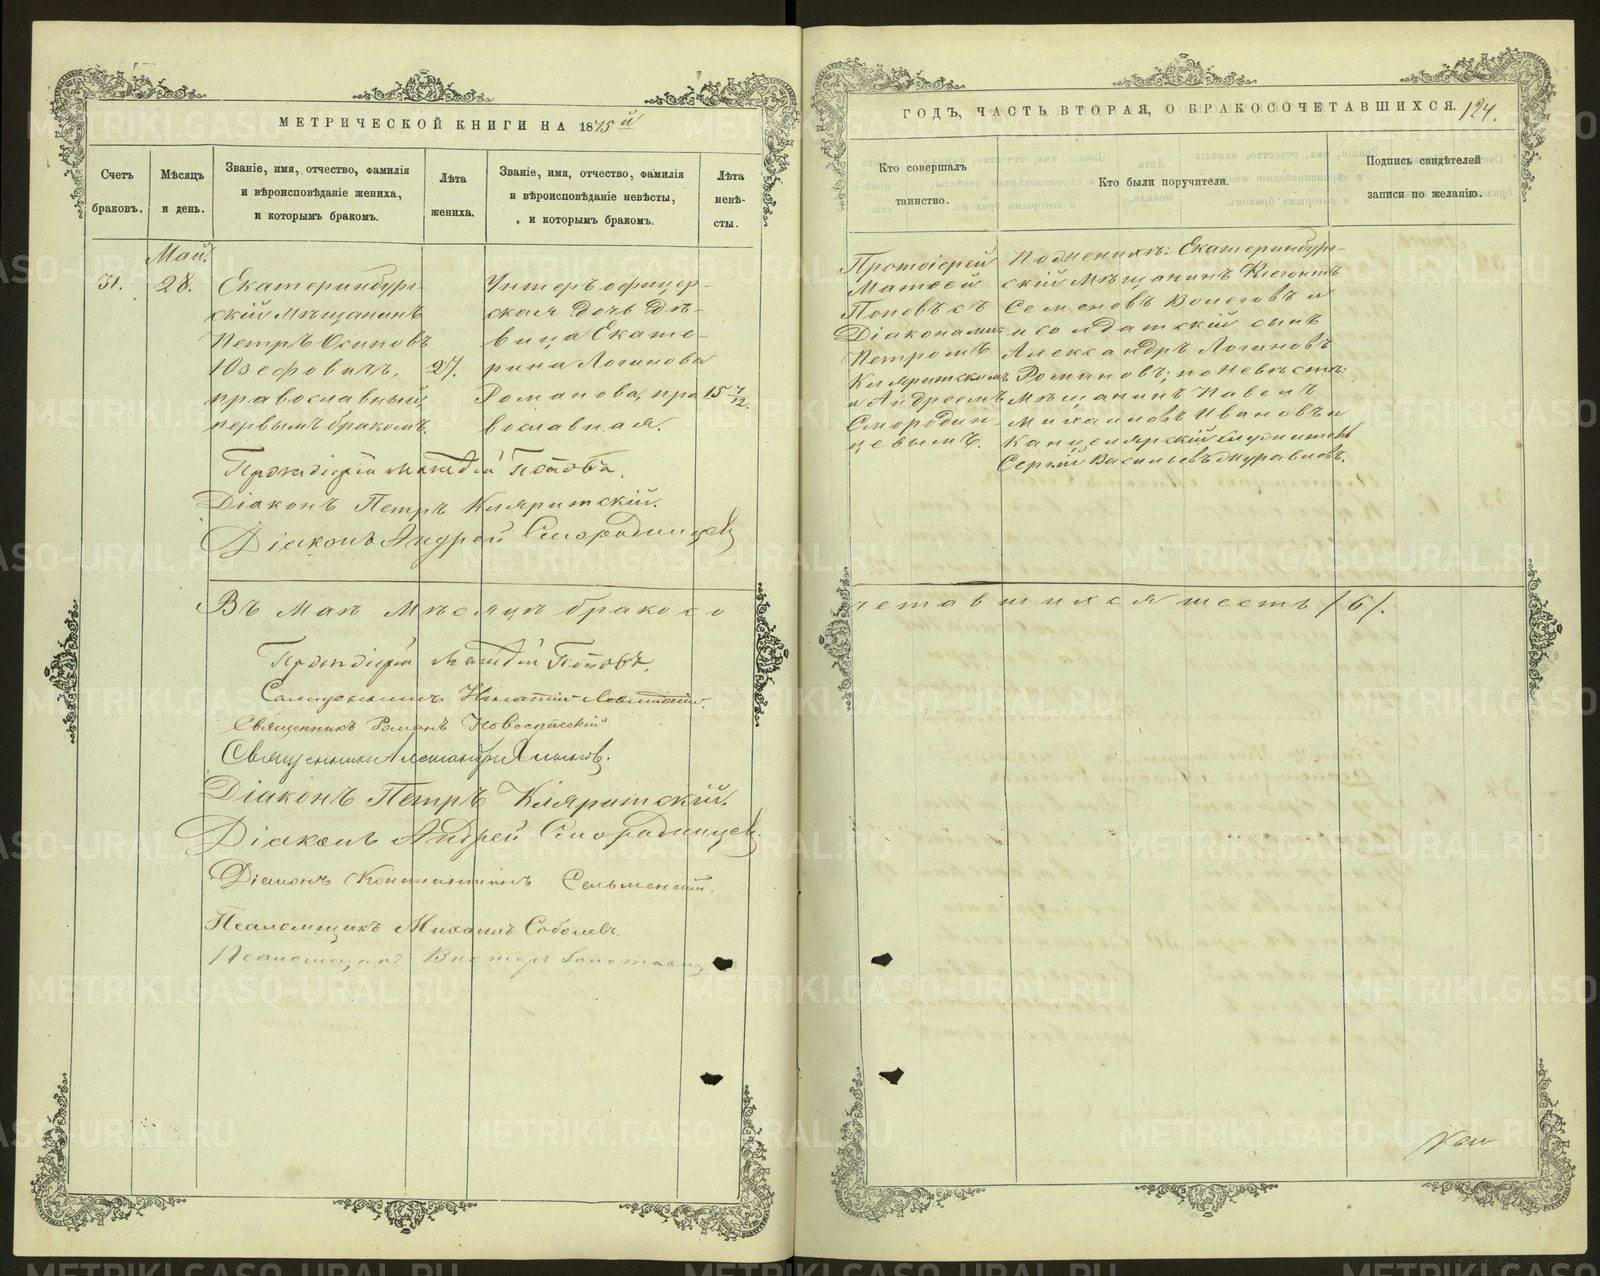 МЕТРИЧЕСКОЙ КНИГИ НА 1875й
Счетъ браковъ.
Мѣсяцъ и день.
Званіе, имя, отчество, фамилія и вѣроисповѣданіе жениха, и которымъ бракомъ.
Лѣта жениха.
Званіе, имя, отчество, фамилія и вѣроисповѣданіе невѣсты, и которымъ бракомъ.
Лѣта невѣ-сты.
Май.
31.
28.
Екатеринбург-
скій Мѣщанинъ
Петръ Осиповъ
Юзефовичъ,
православный,
первымъ бракомъ.
27.
Унтеръ офицер-
ская дочь дѣ-
вица Екате-
рина Логинова
Романова, пра
вославная.
15 7/12.
Протоіерей Матѳей Поповъ.
Діаконъ Петръ Кляритскій.
Діаконъ Андрей Смородинцевъ
Въ Маѣ Мѣсяцѣ бракосо
Протоіерей Матѳей Поповъ.
Священникъ Игнатій Левитскій.
Священникъ Романъ Новоспасскій
Священникъ Александръ
Діаконъ Петръ Кляритскій.
Діаконъ Андрей Смородинцевъ.
Діаконъ Константинъ
Псаломщикъ Михаилъ Соболевъ.
Псаломщикъ Викторъ
ГОДЪ, ЧАСТЬ ВТОРАЯ, О БРАКОСОЧЕТАВШИХСЯ.
124.
Кто совершалъ таинство.
Кто были поручители.
Подпись свидѣтелей записи по желанію.
Протоіерей
Матѳей
Поповъ съ
Діаконами
Петромъ
Кляритскимъ
и Андреемъ
Смородин
цевымъ.
По женихѣ: Екатеринбург-
скій Мѣщанинъ
Семеновъ и
и солдатскій сынъ
Александръ Логиновъ
Романовъ; по невѣстѣ:
Мѣщанинъ Павелъ
Михаиловъ Ивановъ и
Канцелярскій служитель
Сергѣй Васильевъ Муравьевъ.
четавшихся шесть /6/.